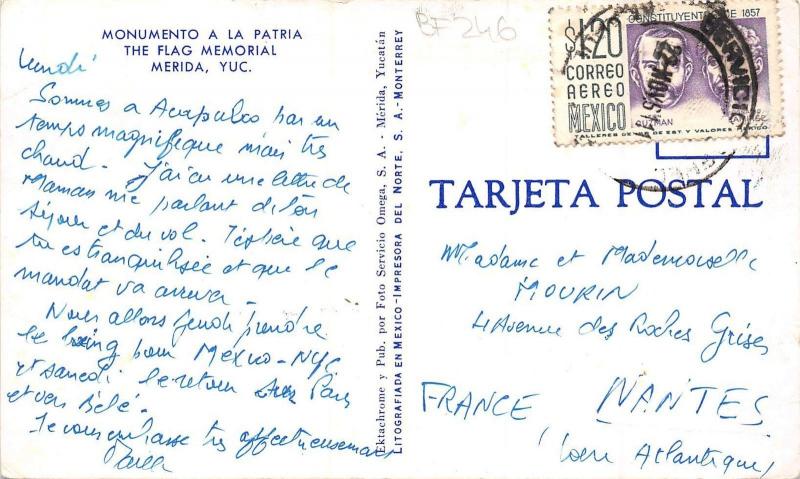 MONUMENTO A LA PATRIA
THE FLAG MEMORIAL
MERIDA, YUC.
BF 246
Lundi
Sommes a Acapulco par un
temps magnifique mais très
chaud. J'ai eu une lettre de
Maman me parlant de ton
séjour et du vol. J'espère que
tu es tranquilisée et que le
mandat va arriver.
Nous allons jeudi prendre
le boeing pour México-NYC
et samedi le retour sur Paris
et vers Bébé.
Je vous embrasse très affectueusement
Ektachrome y Pub. por Foto Servicio Omega, S. A. - Mérida, Yucatán
LITOGRAFIADA EN MEXICO-IMPRESORA DEL NORTE, S. A.-MONTERREY
$1.20
CONSTITUYENTE DE 1857
CORREO
AEREO
MEXICO
GUZMAN
TALLERES DE IMP. DE EST. Y VALORES MEXICO
TARJETA POSTAL
Madame et Mademoiselle
MOURIN
4 Avenue des Roches Grises
NANTES
FRANCE
(Loire Atlantique)